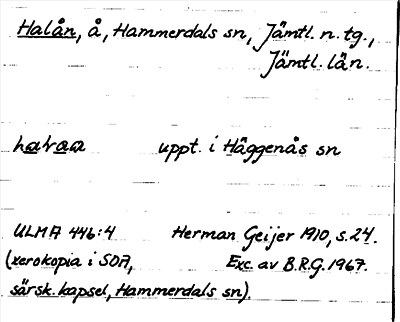 Halån, å, Hammerdals sn, Jämtl. n. tg.,
Jämtl. län.
uppt. i Häggenås sn
ULMA 446:4 Herman Geijer 1910, s. 24.
(xerokopia i SOA, Exc. av B.R.G. 1967.
särsk. kapsel, Hammerdals sn).